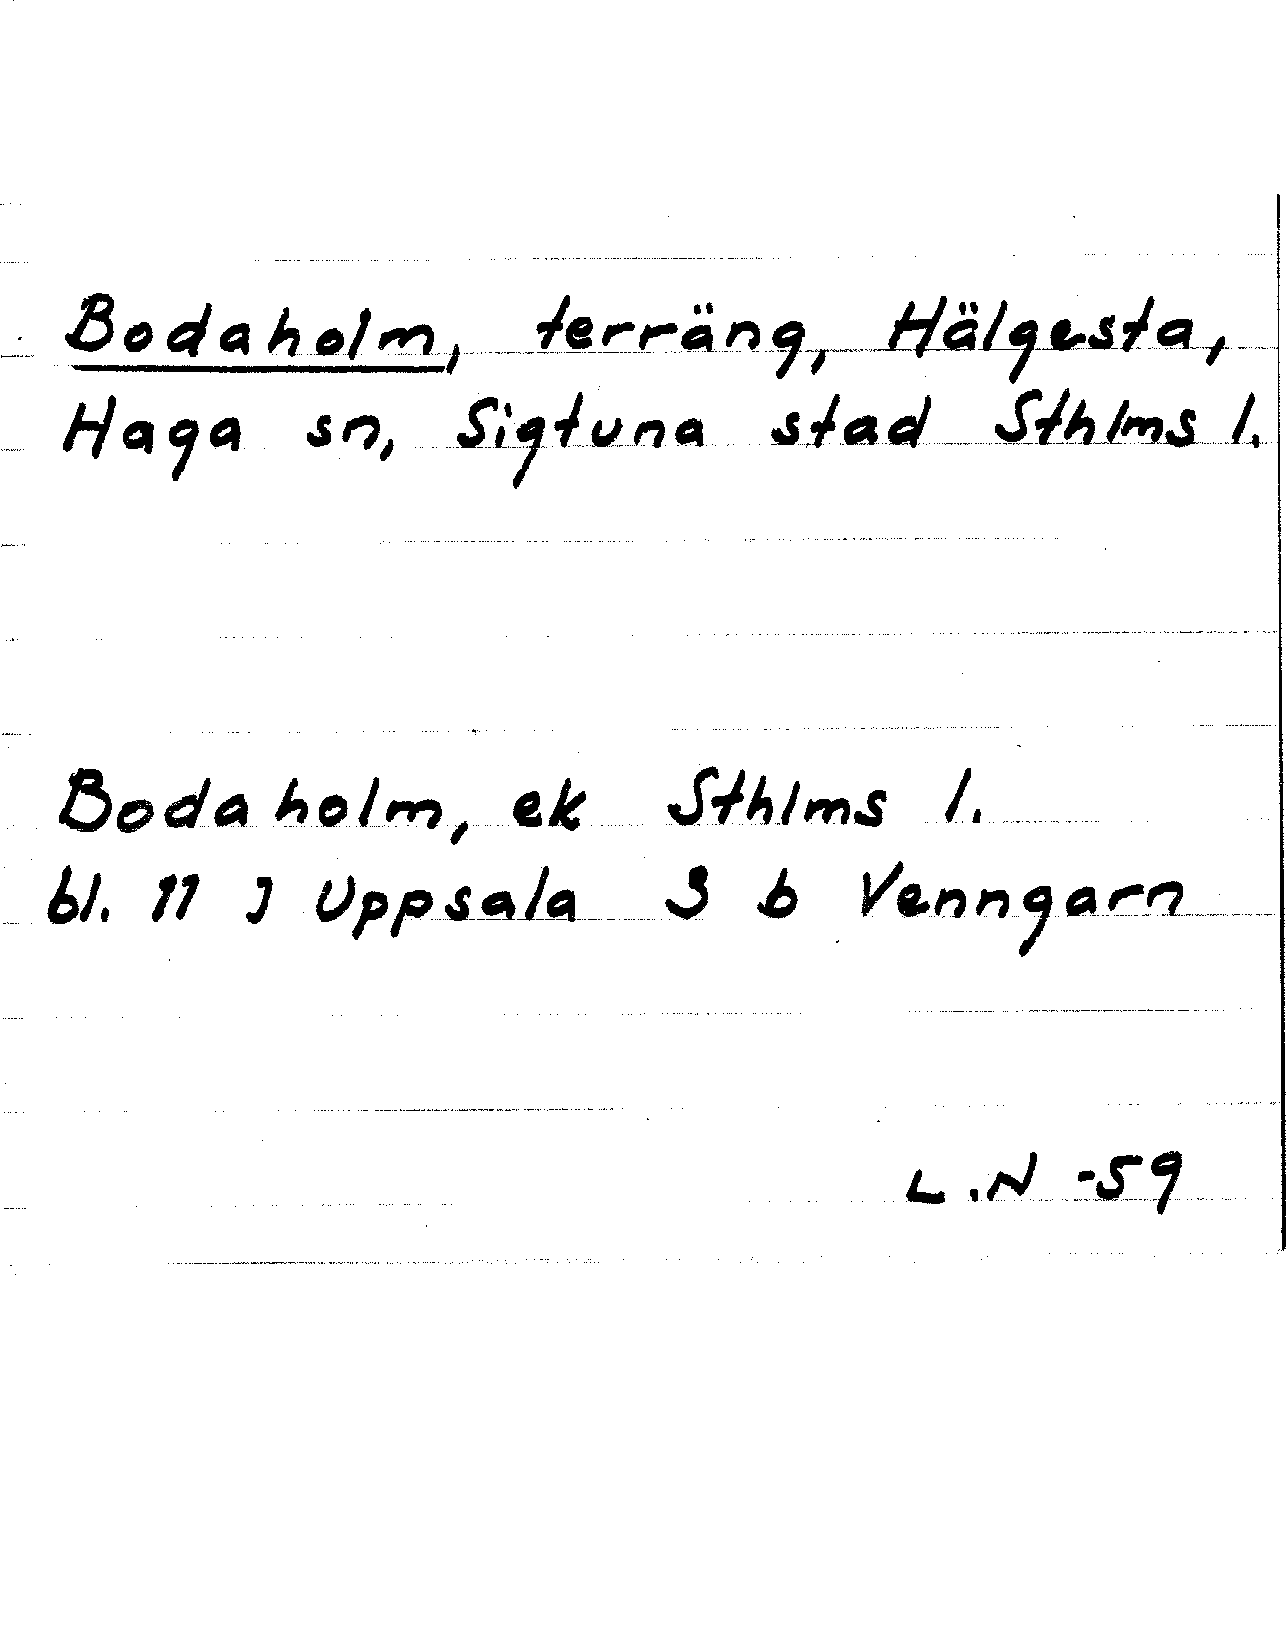 Bodaholm, terräng, Hälgesta,
Haga sn, Sigtuna stad Sthlms l.
Bodaholm, ek Sthlms l.
bl. 11 J Uppsala 3 b Venngarn
L.N -59